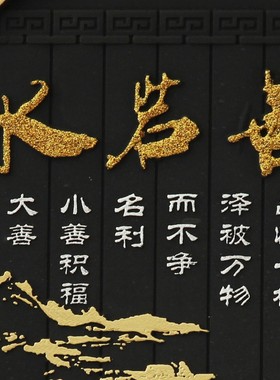 善若水
泽被万物
而不争
名利
小善积福
大善